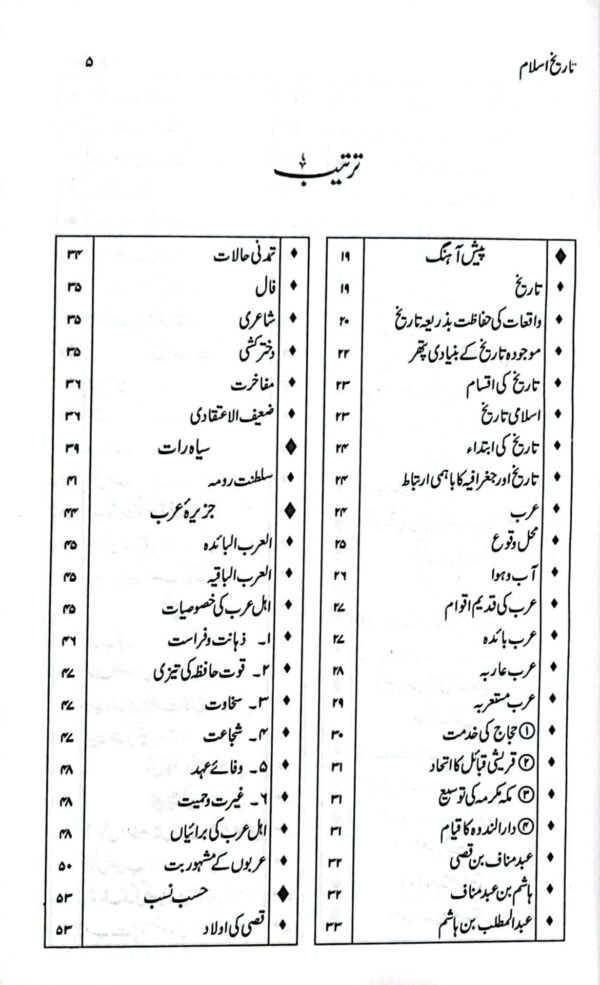 تاریخ اسلام ۵
ترتیب
پیش آہنگ ۱۹
تاریخ ۱۹
واقعات کی حفاظت بذریعہ تاریخ ۲۰
موجودہ تاریخ کے بنیادی پتھر ۲۲
تاریخ کی اقسام ۲۳
اسلامی تاریخ ۲۳
تاریخ کی ابتداء ۲۴
تاریخ اور جغرافیہ کا باہمی ارتباط ۲۴
عرب ۲۴
محل وقوع ۲۵
آب و ہوا ۲۶
عرب کی قدیم اقوام ۲۷
عرب بائدہ ۲۷
عرب عاربہ ۲۸
عرب مستعربہ ۲۹
① حجاج کی خدمت ۳۰
② قریشی قبائل کا اتحاد ۳۱
③ مکہ مکرمہ کی توسیع ۳۱
④ دارالندوہ کا قیام ۳۱
عبد مناف بن قصی ۳۲
ہاشم بن عبد مناف ۳۲
عبدالمطلب بن ہاشم ۳۳
تمدنی حالات ۳۴
فال ۳۵
شاعری ۳۵
دختر کشی ۳۵
مفاخرت ۳۶
ضعیف الاعتقادی ۳۶
سیاہ رات ۳۹
سلطنت رومہ ۴۱
جزیرۂ عرب ۴۴
العرب البائدہ ۴۵
العرب الباقیہ ۴۵
اہل عرب کی خصوصیات ۴۵
۱۔ ذہانت و فراست ۴۶
۲۔ قوت حافظہ کی تیزی ۴۷
۳۔ سخاوت ۴۷
۴۔ شجاعت ۴۷
۵۔ وفائے عہد ۴۸
۶۔ غیرت و حمیت ۴۸
اہل عرب کی برائیاں ۴۸
عربوں کے مشہور بت ۵۰
حسب نسب ۵۳
قصی کی اولاد ۵۳